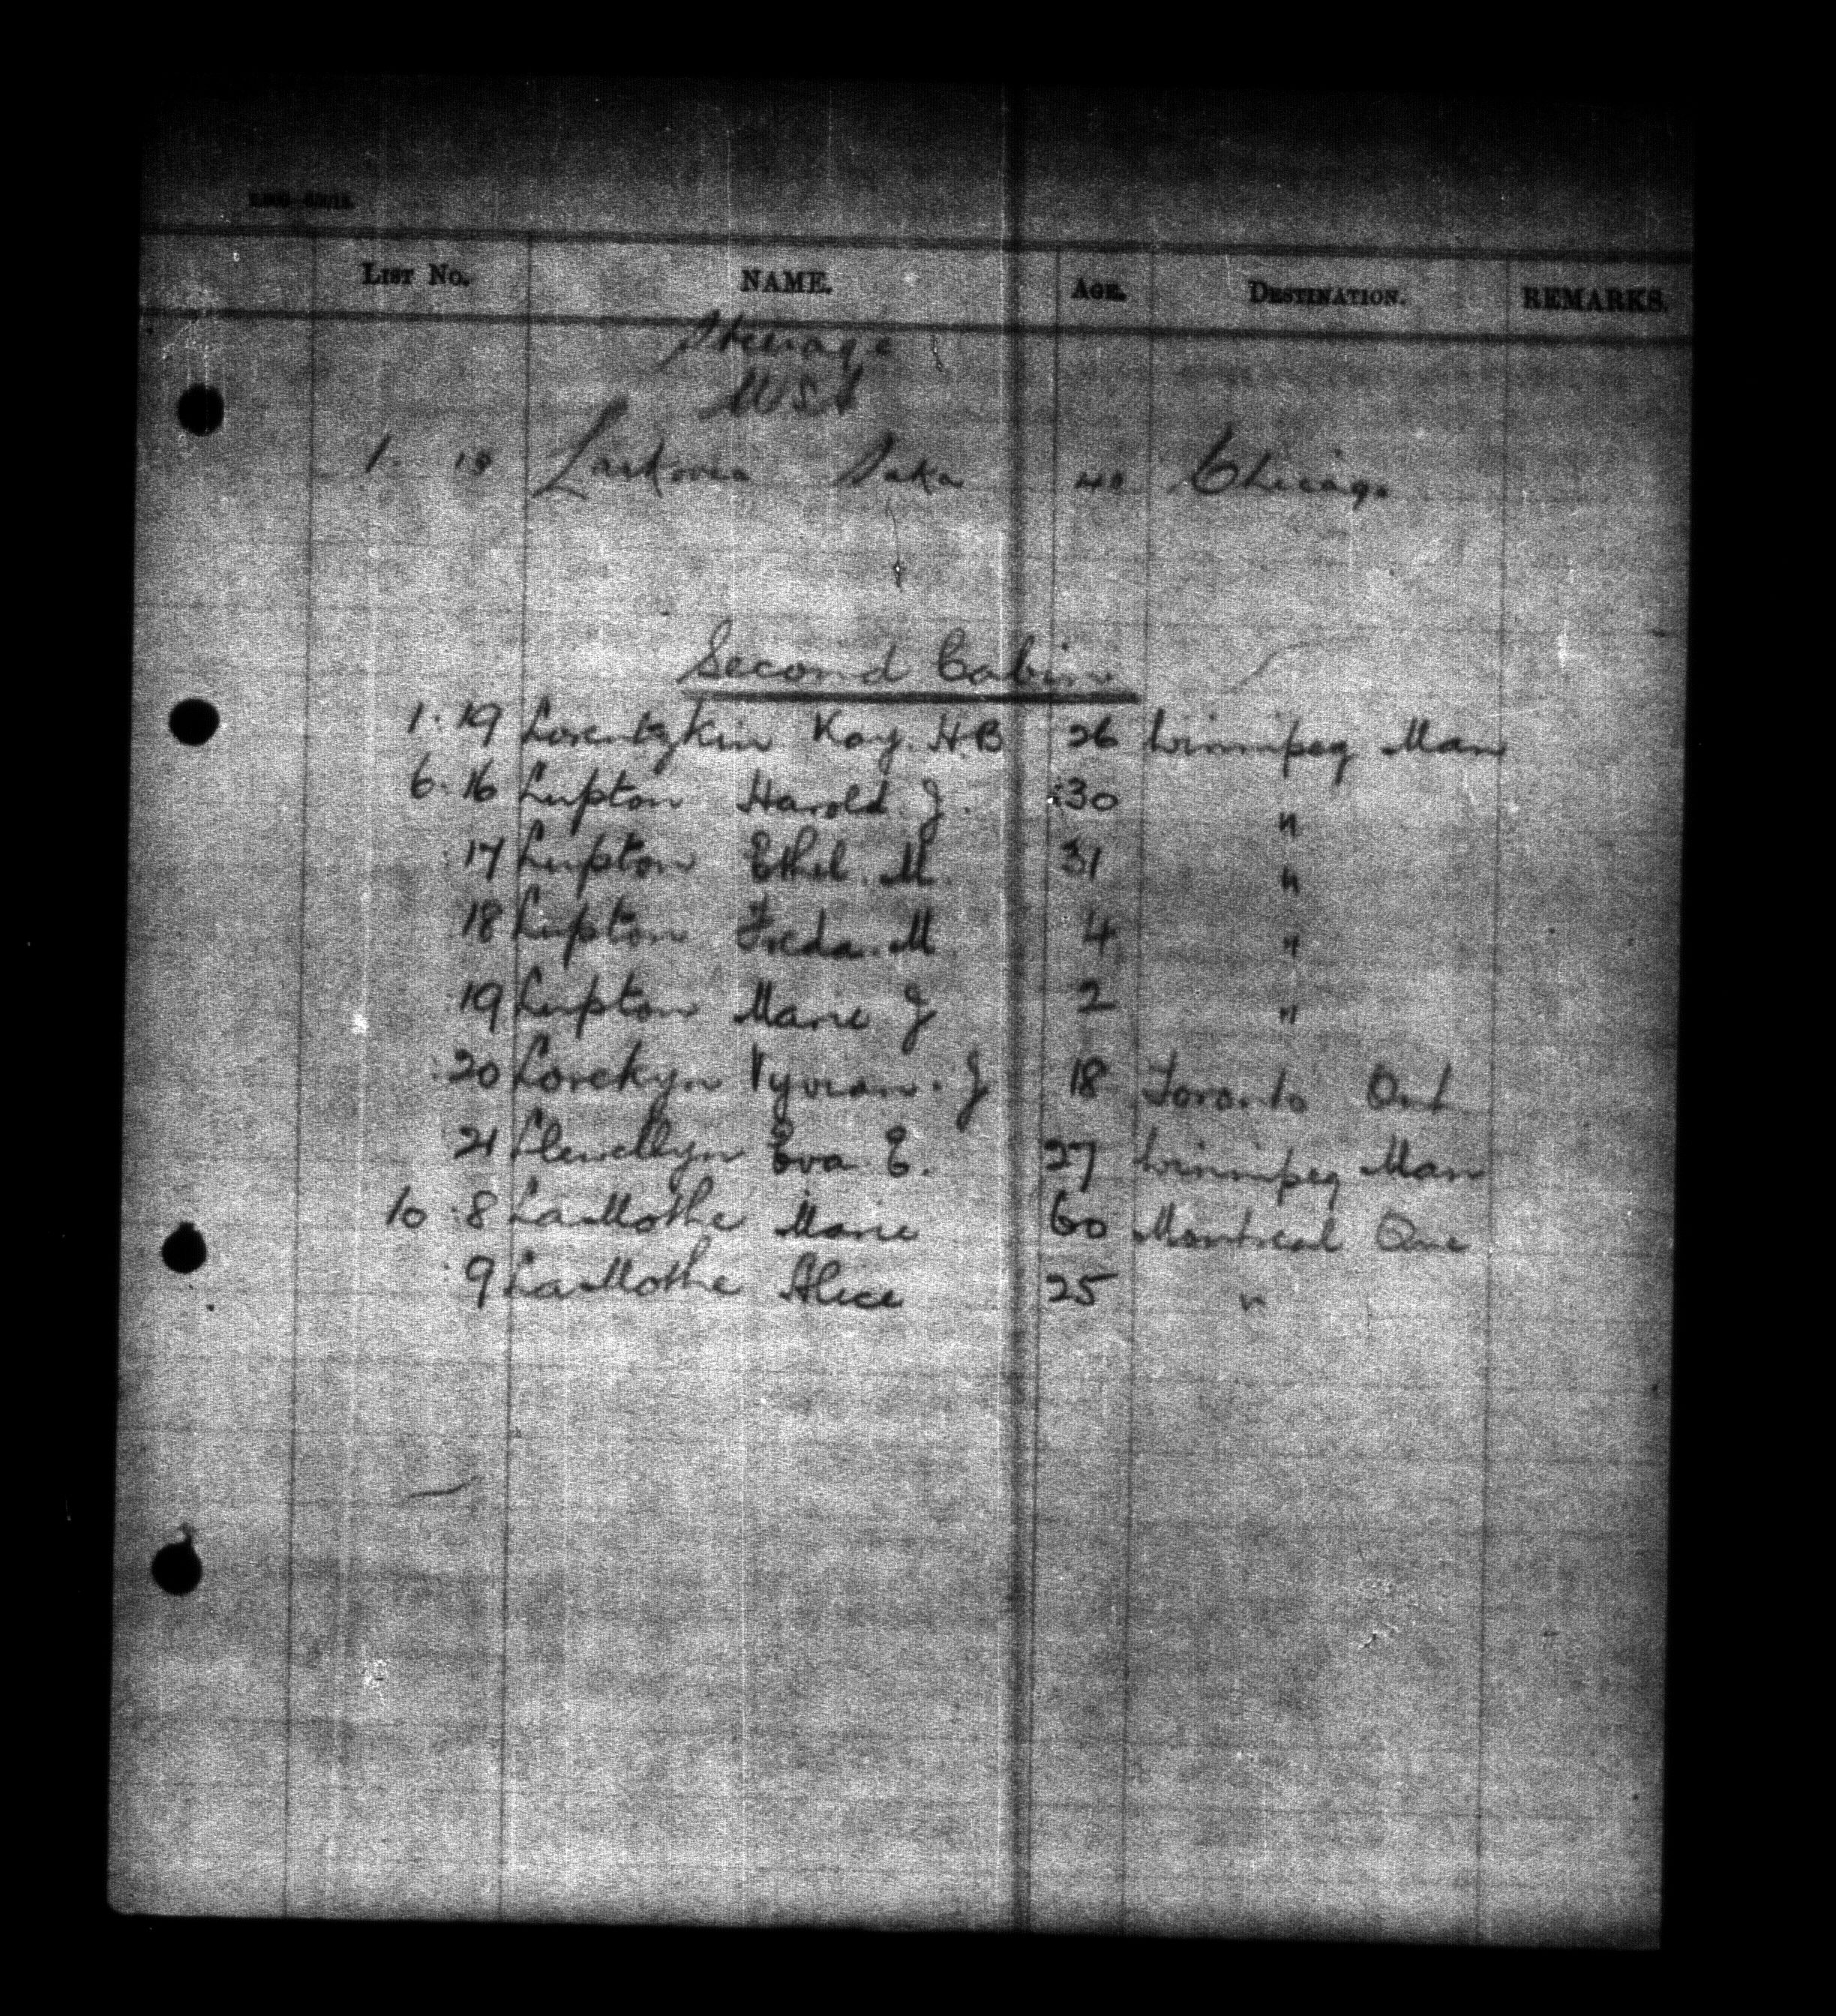 LIST No. NAME. AGE. DESTINATION. REMARKS.
Steerage
USA
1. 18 40 Chicago
Second Cabin
1. 19 Kay. H.B 26 Winnipeg Man
6. 16 Lupton Harold. J. 30 "
17 Lupton Ethel. M. 31 "
18 Lupton Freda. M 4 "
19 Lupton Marie J 2 "
20 Vyvian. J 18 Toronto Ont
21 Llewellyn Eva E. 27 Winnipeg Man
10 8 LaMothe Marie 60 Montreal Que
9 LaMothe Alice 25 "